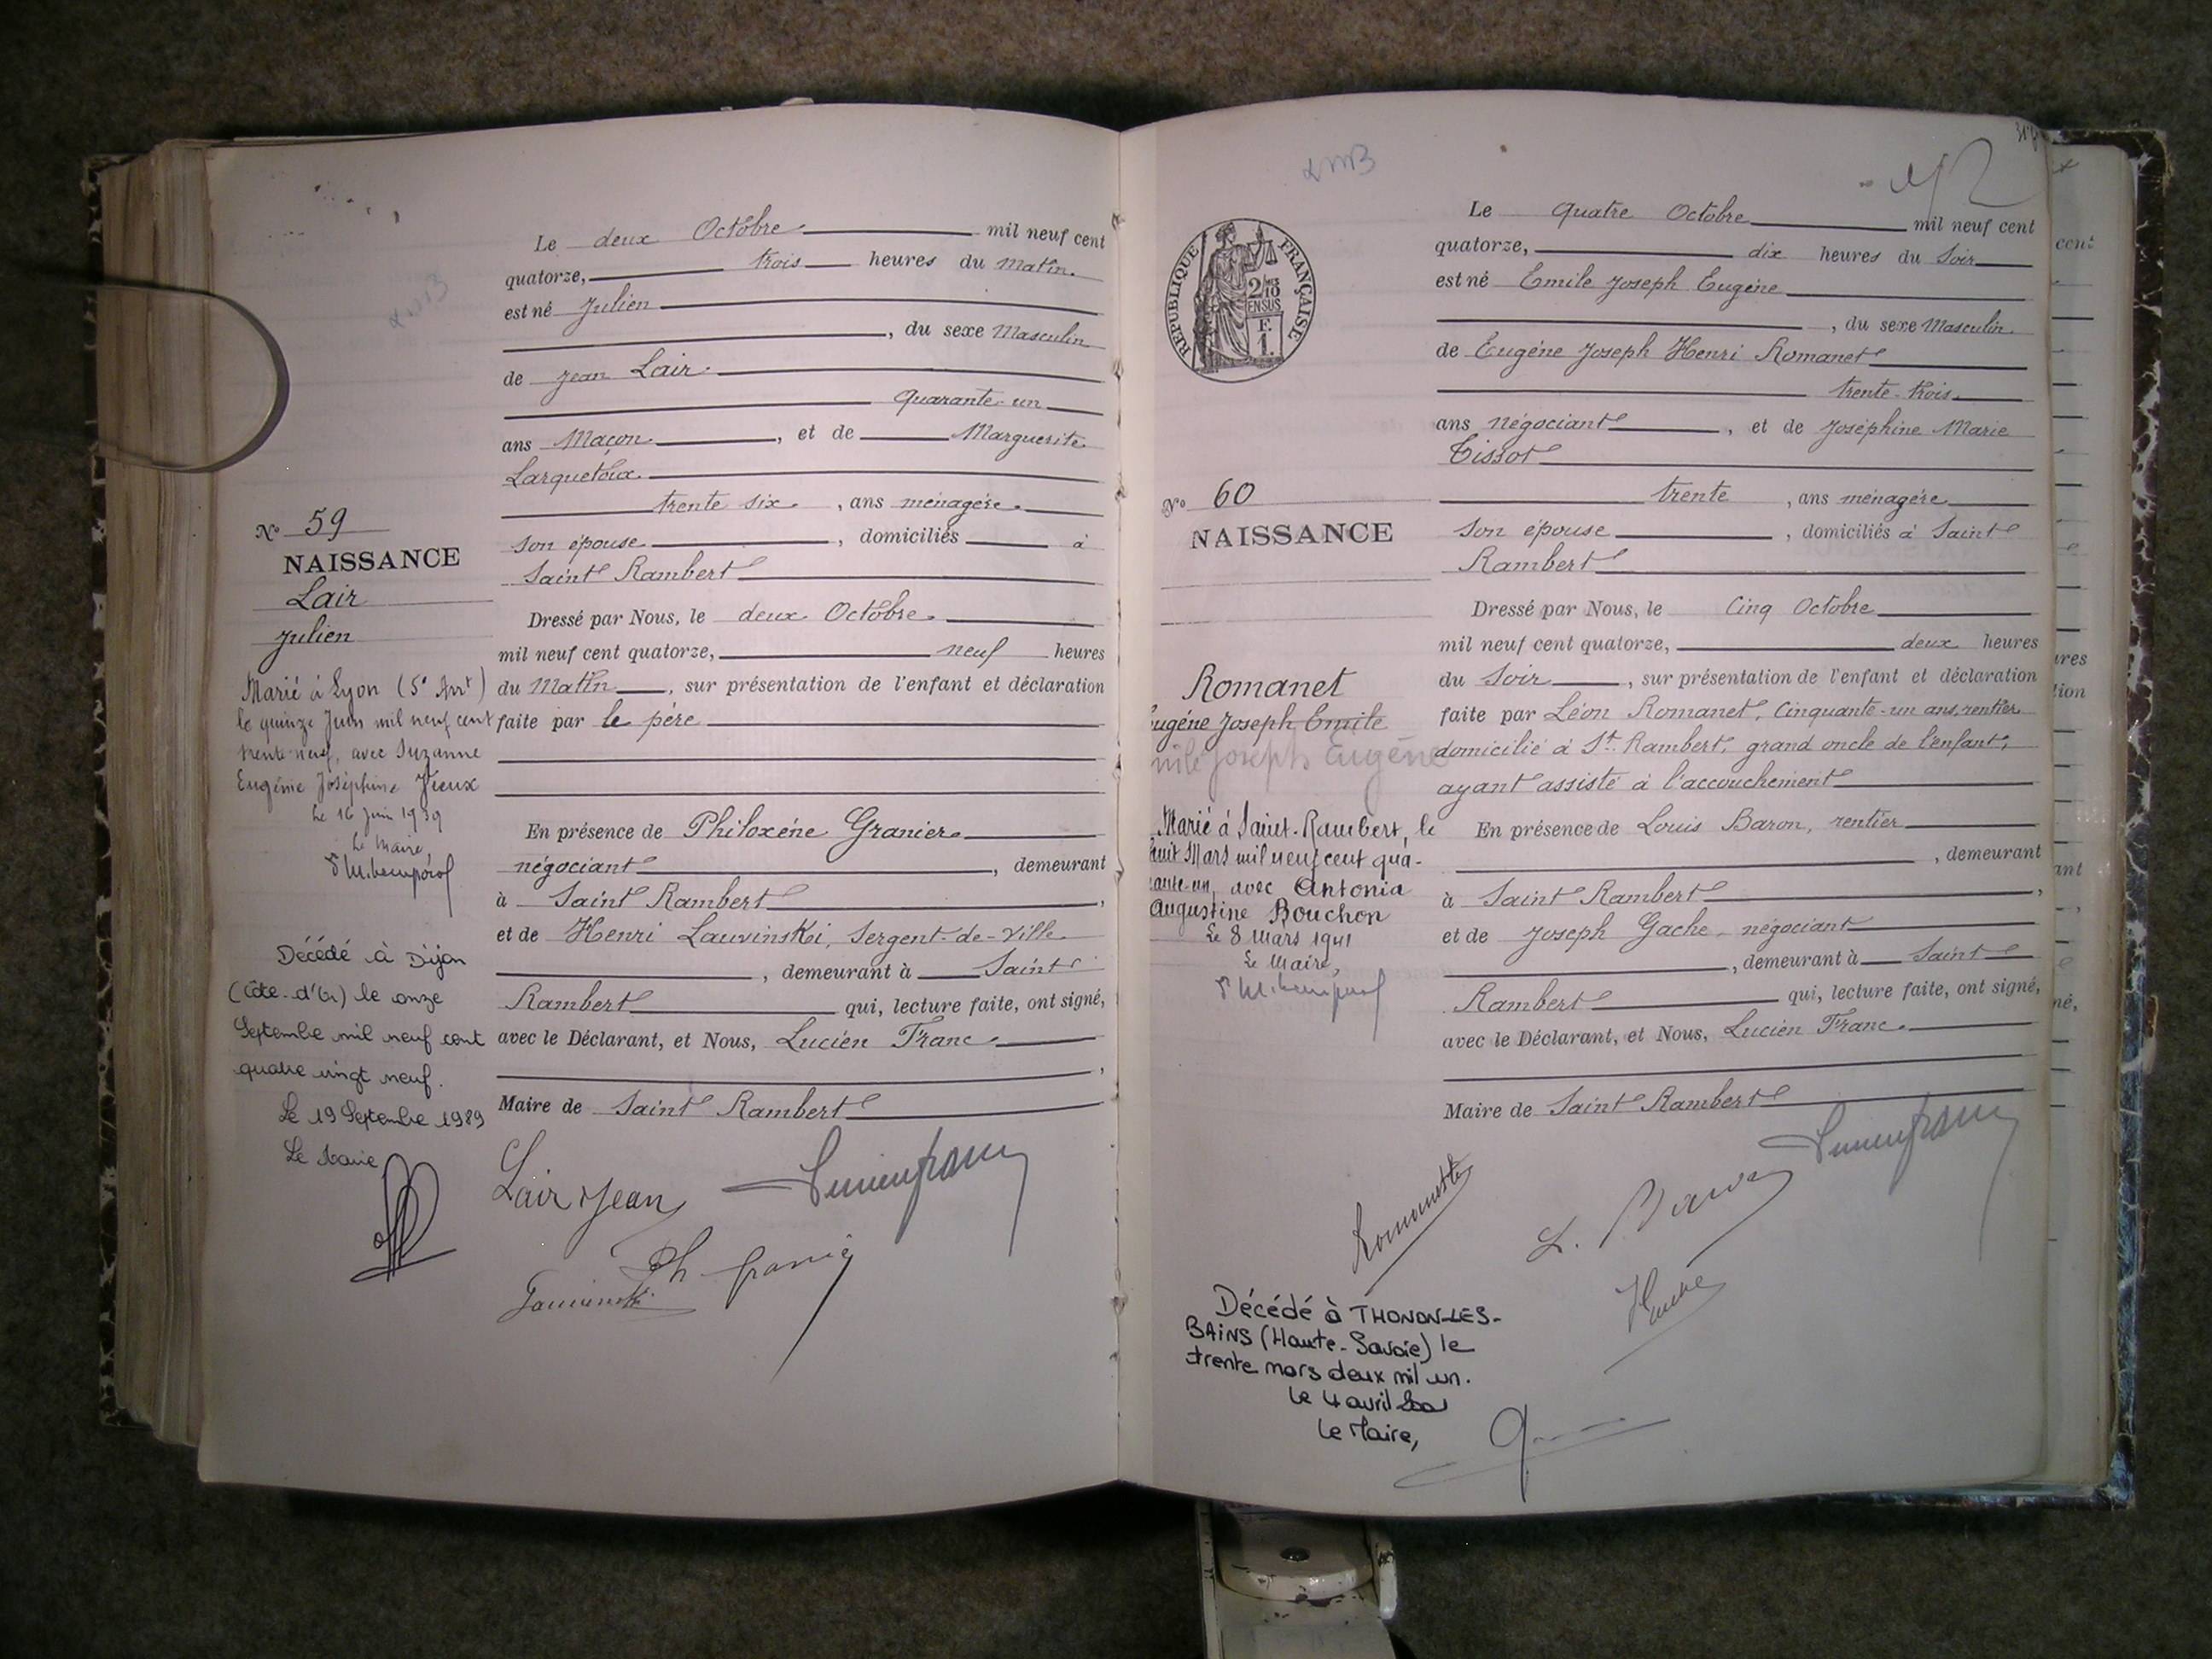 Le deux Octobre mil neuf cent
quatorze, trois heures du Matin.
est né Julien
, du sexe Masculin
de Jean Lair.
quarante-un
ans Maçon. , et de Marguerite
Larquetoux.
trente six. , ans ménagère.
son épouse , domiciliés à
Saint Rambert
Dressé par Nous, le deux Octobre.
mil neuf cent quatorze, neuf heures
du Matin , sur présentation de l'enfant et déclaration
faite par le père
En présence de Philoxène Granier
négociant , demeurant
à Saint Rambert ,
et de Henri Lauvinski, Sergent-de-Ville
, demeurant à Saint
Rambert qui, lecture faite, ont signé,
avec le Déclarant, et Nous, Lucien Franc.
,
Maire de Saint Rambert
Lair Jean
No 59
NAISSANCE
Lair
Julien
Marié à Lyon (5e Arrt)
le quinze Juin mil neuf cent
trente-neuf, avec Suzanne
Eugénie Joséphine Vieux
Le 16 Juin 1939
Le Maire,
Décédé à Dijon
(Côte-d'Or) le onze
Septembre mil neuf cent
quatre vingt neuf.
Le 19 Septembre 1989
Le Maire
LMB
REPUBLIQUE FRANÇAISE
2/10 MES
EN SUS
F.
1.
Le quatre Octobre mil neuf cent
quatorze, dix heures du Soir
est né Emile Joseph Eugène
, du sexe Masculin.
de Eugène Joseph Henri Romanet
trente-trois
ans négociant , et de Joséphine Marie
Tissot
trente , ans ménagère
son épouse , domiciliés à Saint
Rambert
Dressé par Nous, le Cinq Octobre
mil neuf cent quatorze, deux heures
du Soir , sur présentation de l'enfant et déclaration
faite par Léon Romanet, Cinquante-un ans, rentier
domicilié à St. Rambert, grand oncle de l'enfant,
ayant assisté à l'accouchement
En présence de Louis Baron, rentier
, demeurant
à Saint Rambert ,
et de Joseph Gache, négociant
, demeurant à Saint
Rambert qui, lecture faite, ont signé,
avec le Déclarant, et Nous, Lucien Franc.
Maire de Saint Rambert
No 60
NAISSANCE
Romanet
Eugène Joseph Emile
mile Joseph Eugène
Marié à Saint-Rambert, le
huit Mars mil neuf cent qua-
rante-un, avec Antonia
Augustine Bouchon
Le 8 Mars 1941
Le Maire,
Décédé à THONON-LES-
BAINS (Haute-Savoie) le
trente mars deux mil un.
Le 4 avril 2001
Le Maire,